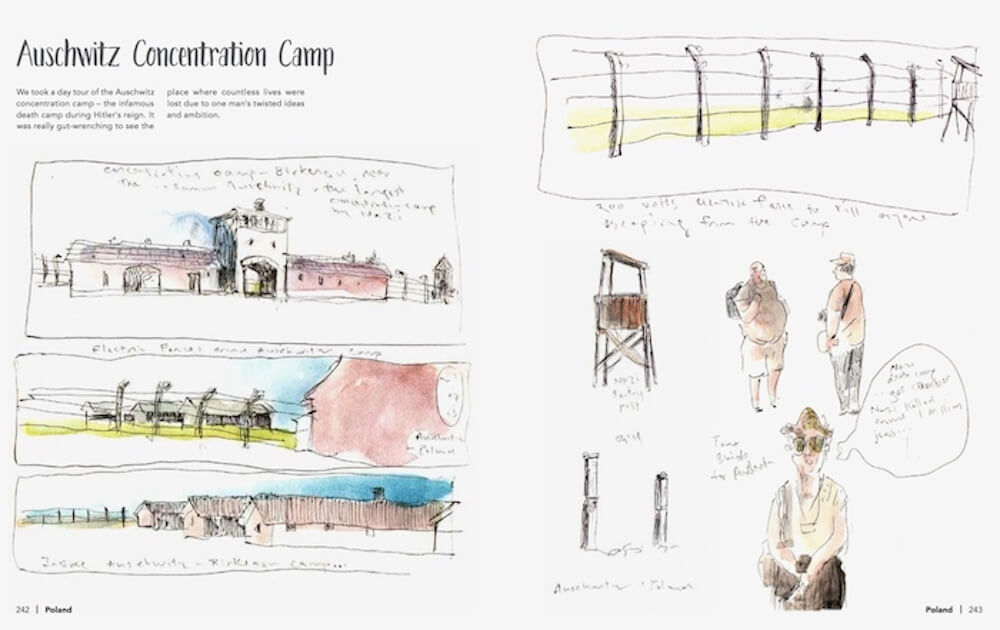 Auschwitz Concentration Camp
We took a day tour of the Auschwitz
concentration camp – the infamous
death camp during Hitler's reign. It
was really gut-wrenching to see the
place where countless lives were
lost due to one man's twisted ideas
and ambition.
concentration camp – Birkenau, near
the infamous Auschwitz - the largest
concentration camp
by Nazi
Electric Fences Auschwitz camp
Auschwitz
Poland
Inside Auschwitz - Birkenau Camp...
242 | Poland
200 volts electric fence to kill anyone
escaping from the camp
Nazi
Sentry
post
Nazi
death camp
gas chamber
Nazi killed
1 million
jews...
Tour
Guide
for
Auschwitz, Poland
Poland | 243